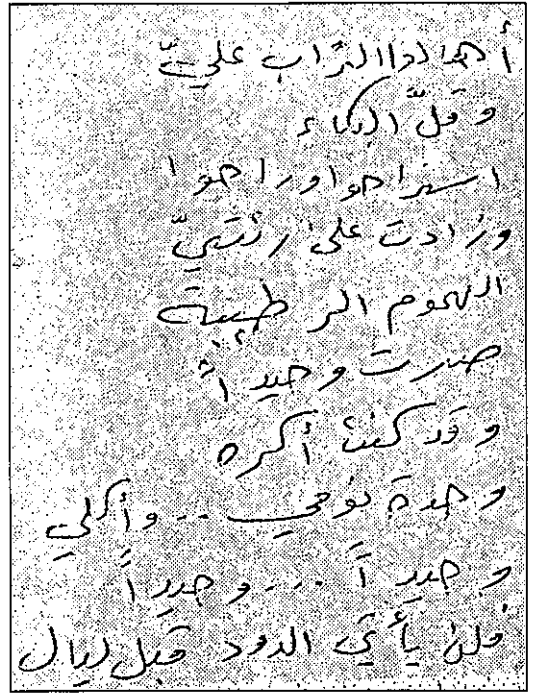 أهالوا التراب عليّ
وقلّ البكاء
استراحوا وراحوا
وزادت على رئتيّ
الهموم الرطيبة
صرت وحيداً
وقد كنت أكره
وحدة نومي .. وأكلي
وحيداً ... وحيداً
فلن يأتي الدود قبل ليال